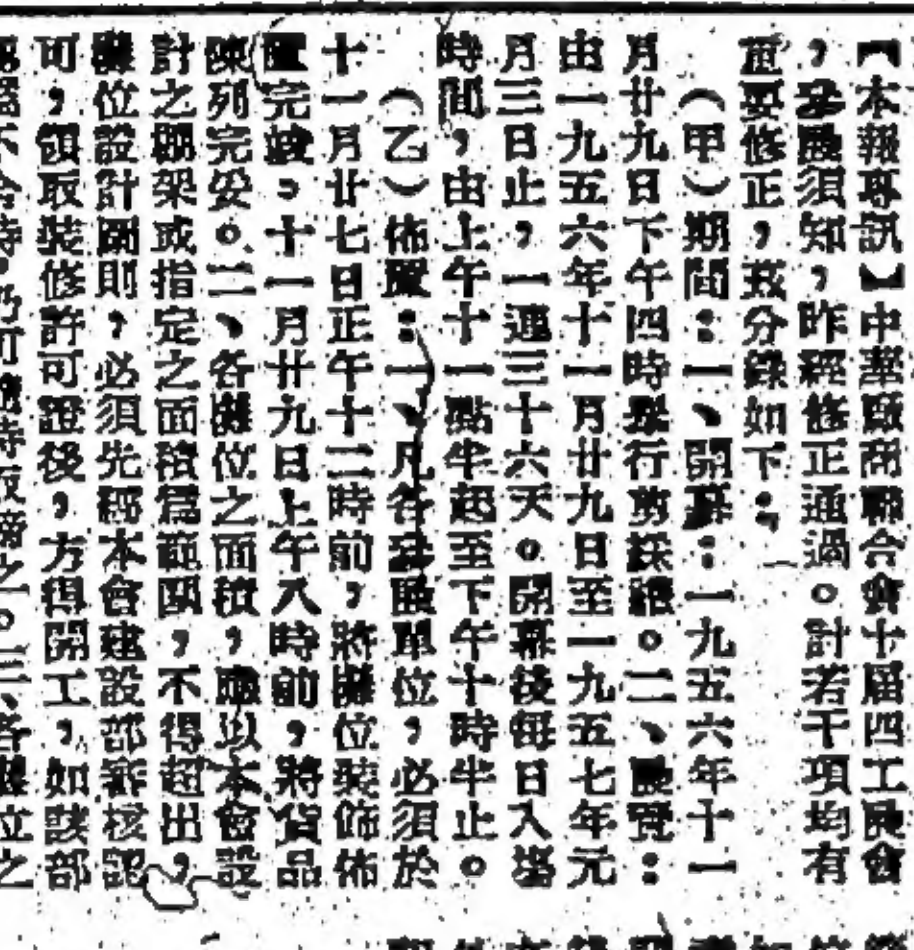 【本報專訊】中華廠商聯合會十屆四工展會
，參展須知，昨經修正通過。計若干項均有
重要修正，茲分錄如下：
（甲）期間：一、開幕：一九五六年十一
月廿九日下午四時舉行剪綵禮。二、展覽：
由一九五六年十一月廿九日至一九五七年元
月三日止，一連三十六天。開幕後每日入塲
時間，由上午十一點半起至下午十時半止。
（乙）佈置：一、凡各參展單位，必須於
十一月廿七日正午十二時前，將攤位裝飾佈
置完竣。十一月廿九日上午八時前，將貨品
陳列完妥。二、各攤位之面積，應以本會設
計之棚架或指定之面積為範圍，不得超出，
攤位設計圖則，必須先經本會建設部審核認
可，領取裝修許可證後，方得開工，如該部
之。三、各攤位之